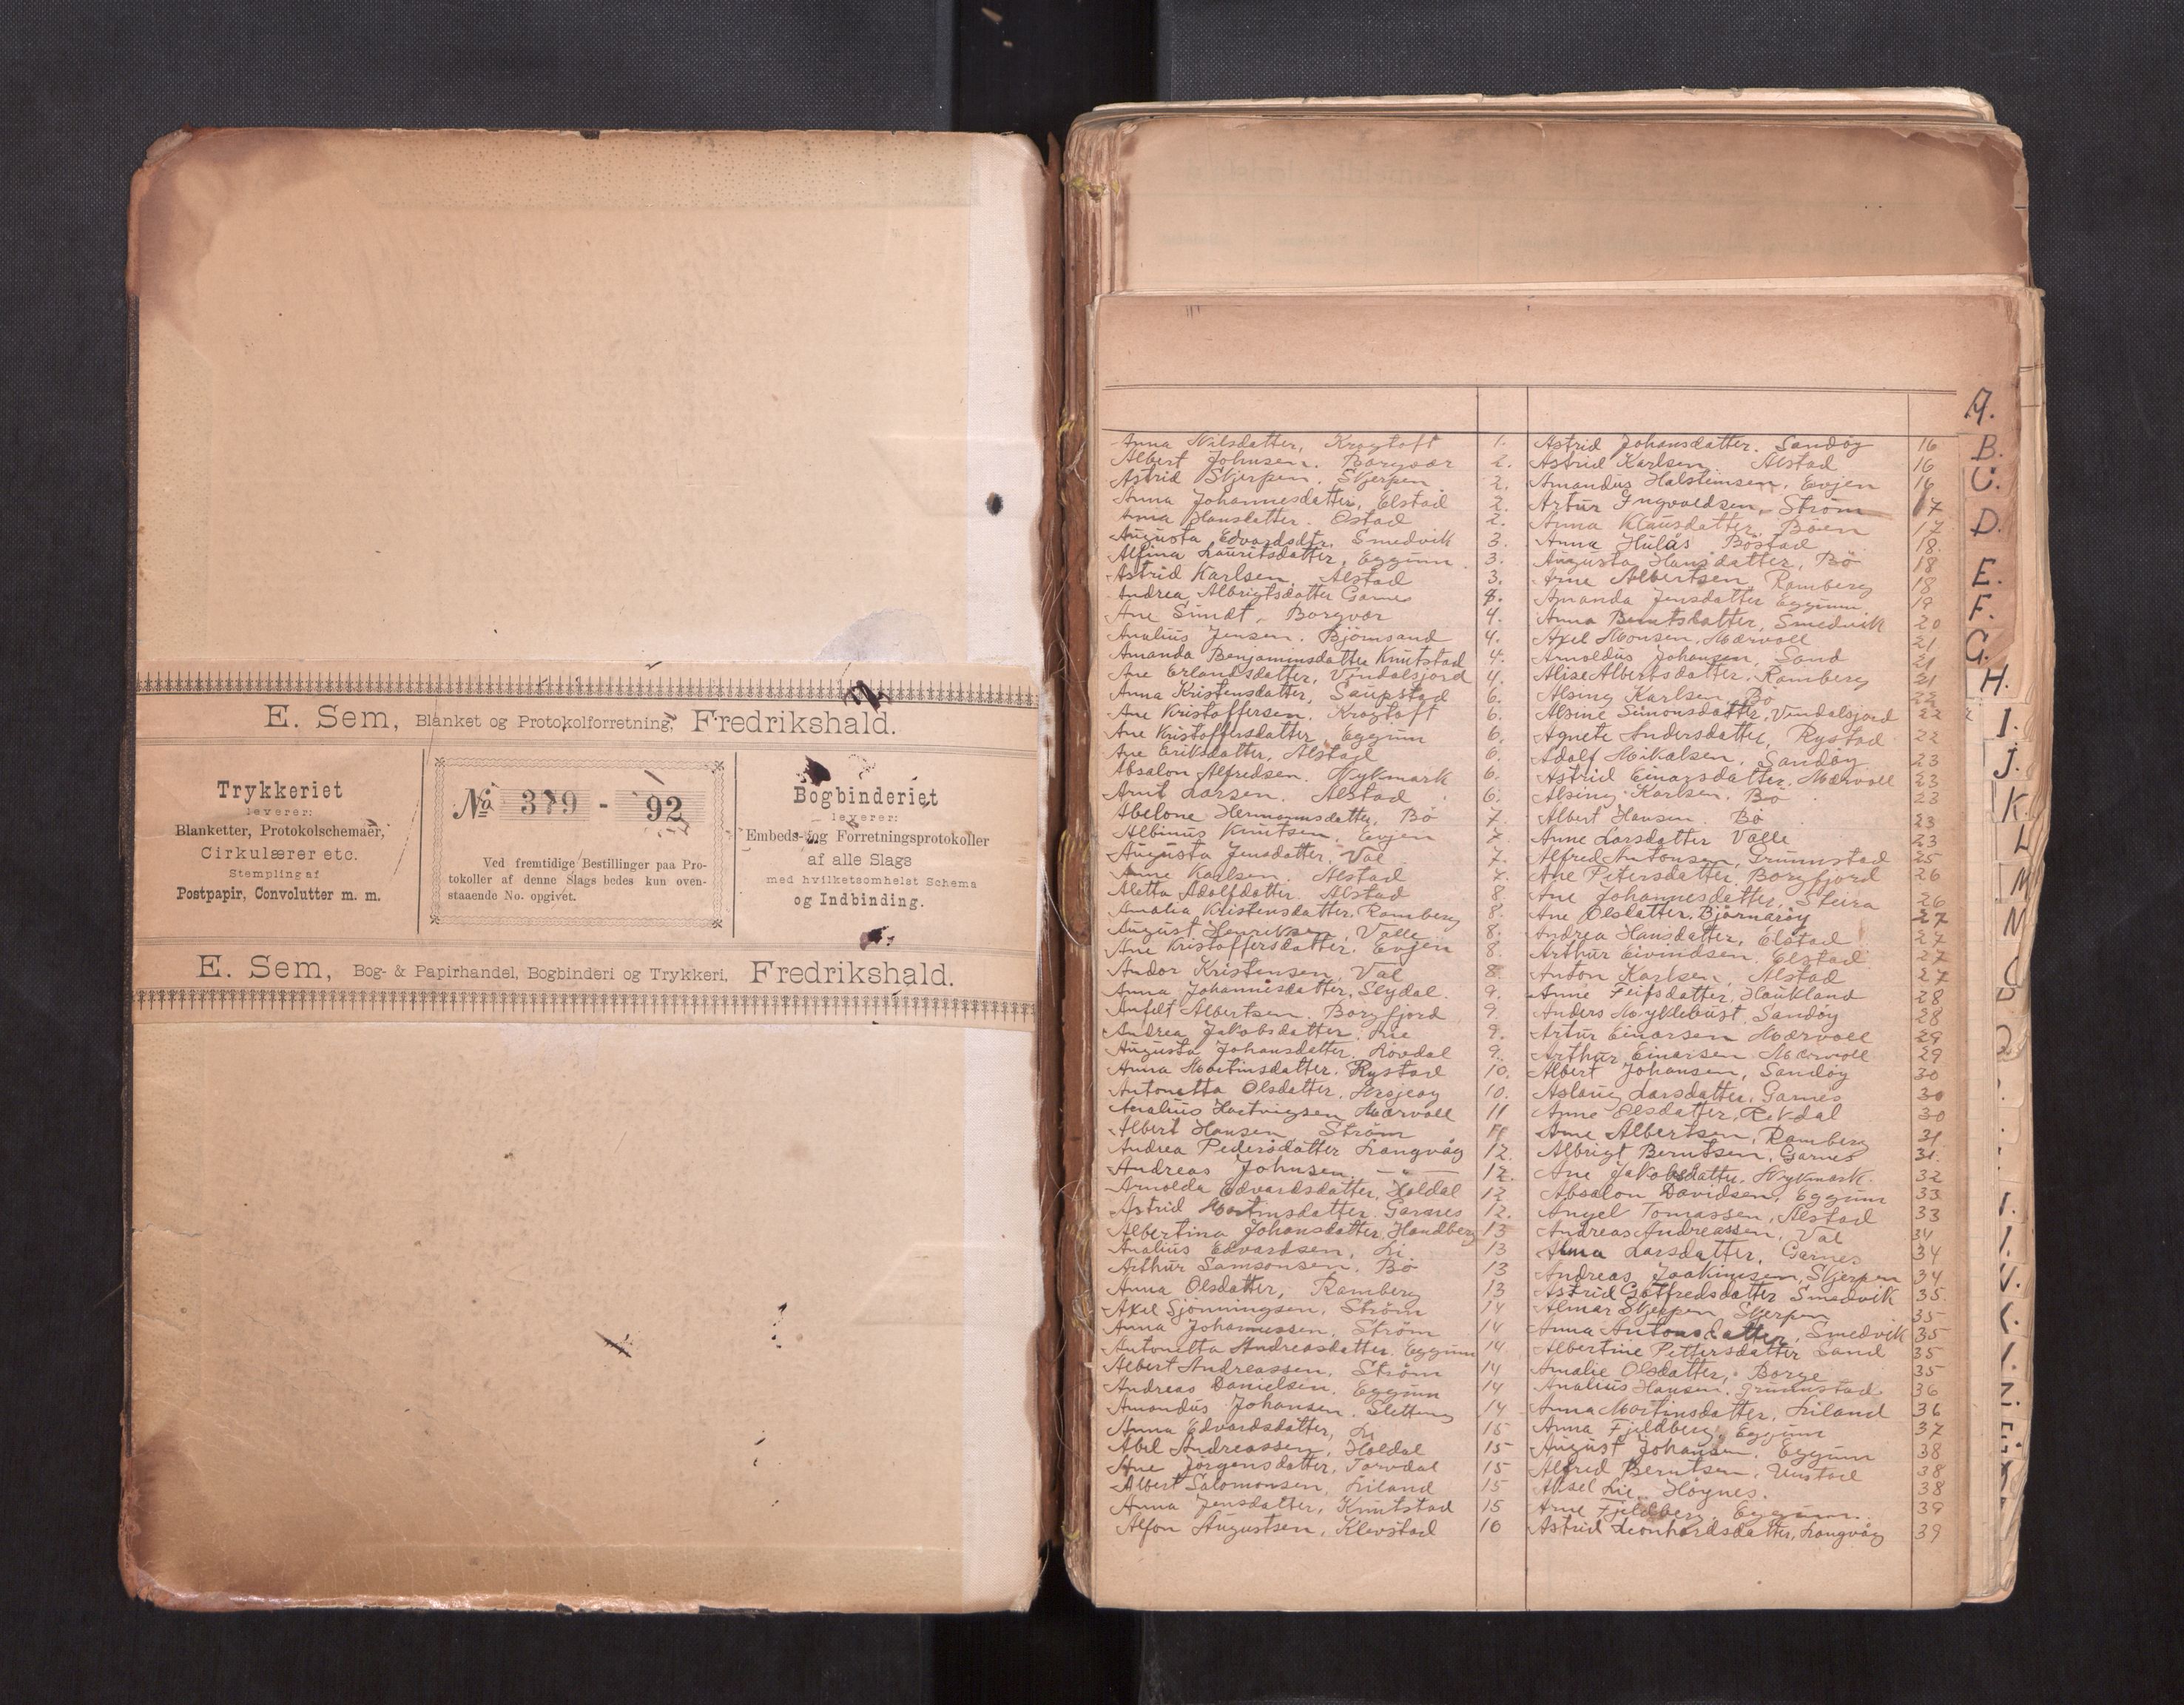 E. Sem, Blanket og Protokolforretning, Fredrikshald.
Trykkeriet
leverer:
Blanketter, Protokolschemaer,
Cirkulærer etc.
Stempling af
Postpapir, Convolutter m. m.
No 379 - 92
Ved fremtidige Bestillinger paa Pro-
tokoller af denne Slags bedes kun oven-
staaende No. opgivet.
Bogbinderiet
leverer:
Embeds- og Forretningsprotokoller
af alle Slags
med hvilketsomhelst Schema
og Indbinding.
E. Sem, Bog- & Papirhandel, Bogbinderi og Trykkeri, Fredrikshald.
Anna Nilsdatter, Krogtoft 1.
Albert Johnsen. Borgvær 2.
Astrid Skjerpen. Skjerpen 2.
Anna Johannesdatter, Elstad 2.
Anna Hansdatter. Ostad 2.
Augusta Edvardsdtr. Smedvik 3.
Alfina Lauritsdatter, Eggum 3.
Astrid Karlsen, Alstad 3.
Andrea Albrigtsdatter Garnes
Ane Sundt, Borgvær 4.
Analius Jensen. Björnsand 4.
Amanda Benjaminsdatter Knutstad 4.
Ane Erlandsdatter, Vindalsjord 4.
Anna Kristensdatter, Saupstad 6.
Ane Kristoffersen. Krogtoft 6.
Ane Kristoffersdatter, Eggum 6.
Ane Eriksdatter, Alstad 6.
Absalon Alfredsen. Nykmark 6.
Arnt Larsen. Alstad 6.
Abelone Hermannsdatter, Bö 7.
Albinus Knutsen, Evjen 7.
Augusta Jensdatter, Val 7.
Anne Karlsen. Alstad 7.
Aletta Adolfdatter. Alstad 8.
Amalia Kristensdatter, Ramberg 8.
August Henriksen, Valle 8.
Ane Kristoffersdatter. Evjen 8.
Andor Kristensen, Val 8.
Anna Johannesdatter, Slydal. 9.
Anfelt Albertsen. Borgfjord 9.
Andrea Jakobsdatter. Lie 9.
Augusta Johansdatter. Rövdal 9.
Anna Martinsdatter. Rystad 10.
Antonetta Olsdatter, 10.
Analius Hartvigsen Mærvoll 11
Albert Hansen Ström 11
Andrea Pedersdatter Langvåg 12.
Andreas Johnsen — " — 12.
Arnolda Edvardsdatter, Holdal 12
Astrid Martinsdatter. Garnes 12.
Albertina Johansdatter, Handberg 13
Analius Edvardsen, Li. 13
Arthur Samsonsen. Bö 13
Anna Olsdatter, Ramberg 13
Axel Sjönningsen, Ström 14
Anna Johannessen, Ström 14
Antonetta Andreasdatter. Eggum 14
Albert Andreassen, Ström 14
Andreas Danielsen. Eggum 14
Amandus Johansen. Sletteng 14
Anna Edvardsdatter, Li 15
Abel Andreassen, Holdal 15
Ane Jörgensdatter, Torvdal 15
Albert Salomonsen, Liland 15
Anna Jensdatter, Knutstad 15
Alfon Augustsen, Klevstad 16
Astrid Johansdatter. Sandöy 16
Astrid Karlsen. Alstad 16
Amandus Halsteinsen, Evjen 16
Artur Ingvaldsen, Ström 17
Anna Klausdatter Böen 17
Anna Hulås Böstad 18.
Augusta Hansdatter, Bö 18
Arne Albertsen, Ramberg 18
Amanda Jensdatter Eggum. 19
Anna Berntsdatter, Smedvik 20
Axel Monsen, Mærvoll 21
Arnoldus Johansen, Sand 21
Alise Albertsdatter, Ramberg 21
Alsing Karlsen Bö 22
Alsine Simonsdatter, Vindalsjord 22
Agnete Andersdatter, Rystad 22
Adolf Mikalsen, Sandöy 23
Astrid Einarsdatter, Mærvoll 23
Alsing Karlsen. Bö 23
Albert Hansen. Bö 23
Anne Larsdatter Valle 23
Alfred Antonsen, Grunnstad 25
Ane Petersdatter, Borgfjord 26
Ane Johannesdatter, Steira 26
Ane Olsdatter, Björnaröy 27
Andrea Hansdatter, Elstad 27
Arthur Eivindsen, Elstad 27
Anton Karlsen, Alstad 27
Anne Leifsdatter, Haukland 28
Anders Myklebust, Sandöy 28
Artur Einarsen Mærvoll 29
Arthur Einarsen Mærvoll 29
Albert Johansen, Sandöy 30
Aslaug Larsdatter, Garnes 30
Anne Olsdatter, Rekdal 30
Arne Albertsen, Ramberg 31
Albrigt Berntsen, Garnes 31.
Ane Jakobsdatter, Nykmark 32
Absalon Davidsen, Eggum 33
Angel Tomassen, Alstad 33
Andreas Andreassen, Val 34
Alma Larsdatter, Garnes 34
Andreas Joakimsen, Skjerpen 34
Astrid Gotfredsdatter Smedvik 35
Almar Skjerpen Skjerpen 35
Anna Antonsdatter, Smedvik 35
Albertine Pettersdatter Sand 35
Amalie Olsdatter, Borge 35
Analius Hansen. Grunnstad 36
Anna Martinsdatter, Liland 36
Anna Fjeldberg, Eggum 37
August Johansen. Eggum 38
Alfred Berntsen, Unstad 38
Aksel Lie. Höynes. 38
Arne Fjeldberg, Eggum. 39
Astrid Leonhardsdatter, Langvåg 39
A.
B.
C.
D.
E.
F.
G.
H.
I.
J.
K.
L
M
N